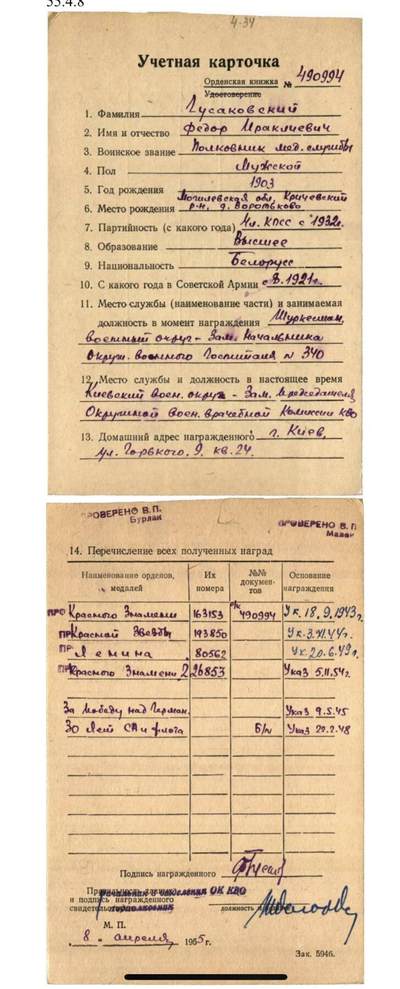 55.4.8
4-34
Учетная карточка
Орденская книжка № 490994
Удостоверение
1. Фамилия Гусаковский
2. Имя и отчество Федор Ираклиевич
3. Воинское звание Полковник мед. службы
4. Пол Мужской
5. Год рождения 1903
6. Место рождения Могилевская обл. Кричевский
р-н, д. Воротьково
7. Партийность (с какого года) Чл. КПСС с 1932г.
8. Образование Высшее
9. Национальность Белорусс
10. С какого года в Советской Армии с 1921г.
11. Место службы (наименование части) и занимаемая
должность в момент награждения Туркестан.
военный округ - Зам. Начальника
Окруж. военного Госпиталя № 340
12. Место службы и должность в настоящее время
Киевский воен. округ - Зам. Председателя
Окружной воен. врачебной Комиссии КВО
13. Домашний адрес награжденного г. Киев,
ул. Горького. 9. кв. 24.
ПРОВЕРЕНО В.П.
Бурлак
ПРОВЕРЕНО В.П
14. Перечисление всех полученных наград
Наименование орденов, медалей
Их номера
№№ докумен-тов
Основание награждения
Красного Знамени 163153 о/к 490994 Ук. 18.9.1943г.
Красной Звезды 193850 Ук. 3.XI.44г.
Ленина 80562 Ук. 20.6.49г.
Красного Знамени 2 26853 Указ 5.11.54г.
За победу над Герман. Указ 9.5.45
30 лет СА и флота Б/н Указ 22.2.48
Подпись награжденного
Правильность данных
и подпись награжденного
свидетельствую
Начальник отделения ОК КВО
подполковник
М. П.
„8“ апреля 1955 г.
Зак. 5946.